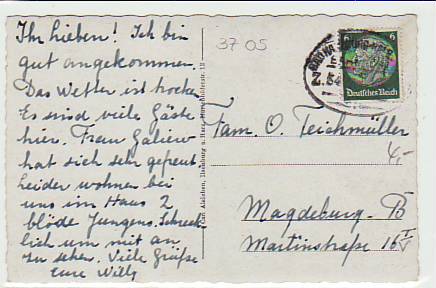 Ihr lieben! Ich bin
gut angekommen.
Das Wetter ist trocken
Es sind viele Gäste
hier. Frau
hat sich sehr gefreut
leider wohnen bei
uns im Haus 2
blöde Jungens. Schreck
lich um mit an
zu sehen. Viele Grüße
Eure Willy
37 05
6
Deutsches Reich
Fam. O. Teichmüller
Magdeburg-B
Martinstraße 16